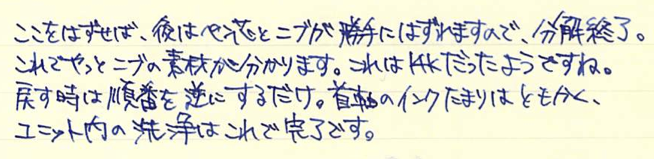 ここをはずせば、後はペン芯とニブが勝手にはずれますので、分解終了。
これでやっとニブの素材が分かります。これは14Kだったようですね。
戻す時は順番を逆にするだけ。首軸のインクたまりはともかく、
ユニット内の洗浄はこれで完了です。